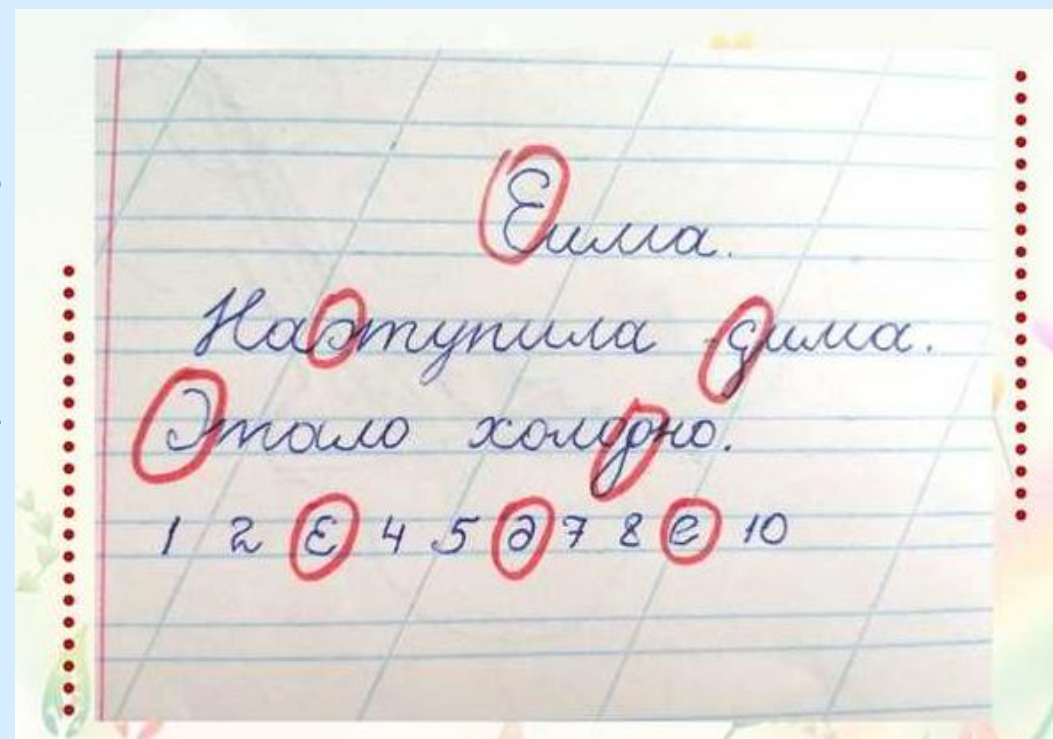 Еима.
Наэтупила дима.
Этало холдрно.
1 2 Ɛ 4 5 ∂ 7 8 e 10